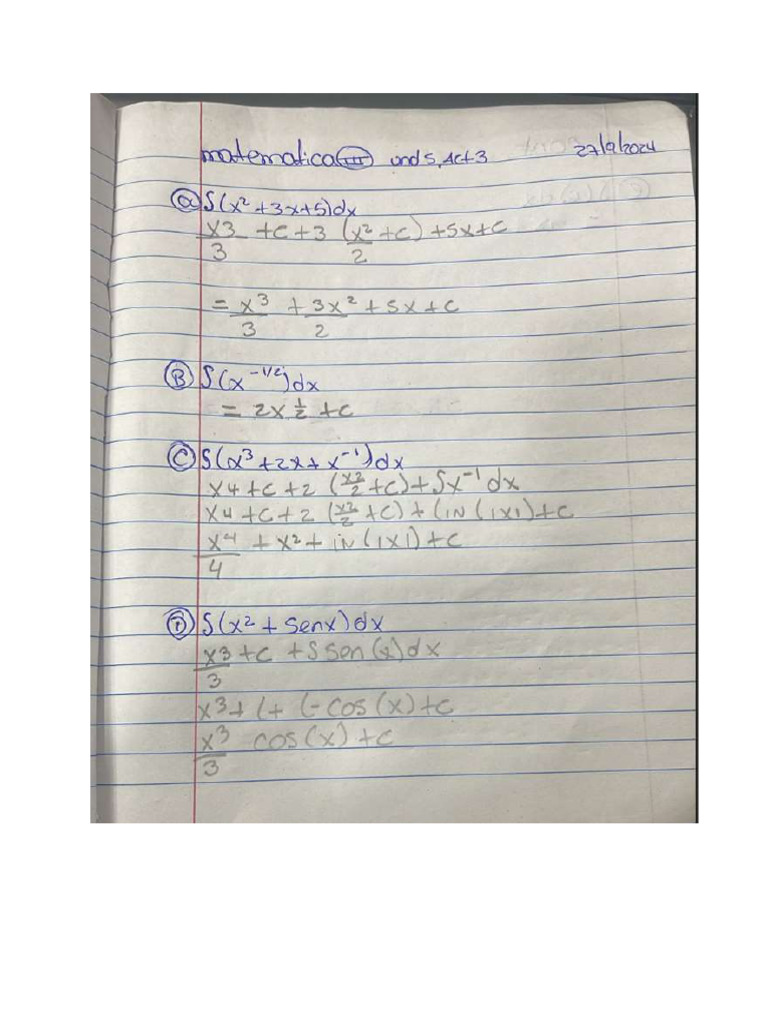 matematica III und 5, Act 3 27/9/2024
a S(x² + 3x + 5)dx
x3/3 + c + 3 (x²/2 + c) + 5x + c
= x³/3 + 3x²/2 + 5x + c
B S(x^-1/2)dx
= 2x 1/2 + c
C S(x³ + 2x + x^-1)dx
x4 + c + 2 (x2/2 + c) + Sx^-1 dx
x4 + c + 2 (x2/2 + c) + (in (1x1) + c
x4/4 + x2 + in (1x1) + c
S(x2 + senx)dx
x3/3 + c + S sen (x)dx
x3 + (+ (- cos (x) + c
x3/3 cos (x) + c